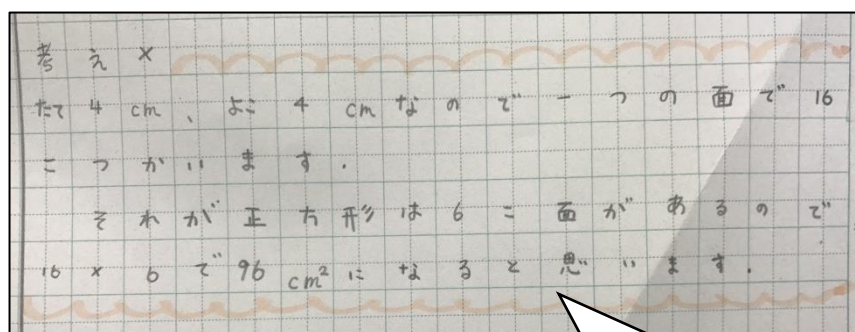 考え×
たて4cm、よこ4cmなので一つの面で16
こつかいます.
それが正方形は6こ面があるので
16×6で96cm²になると思います.